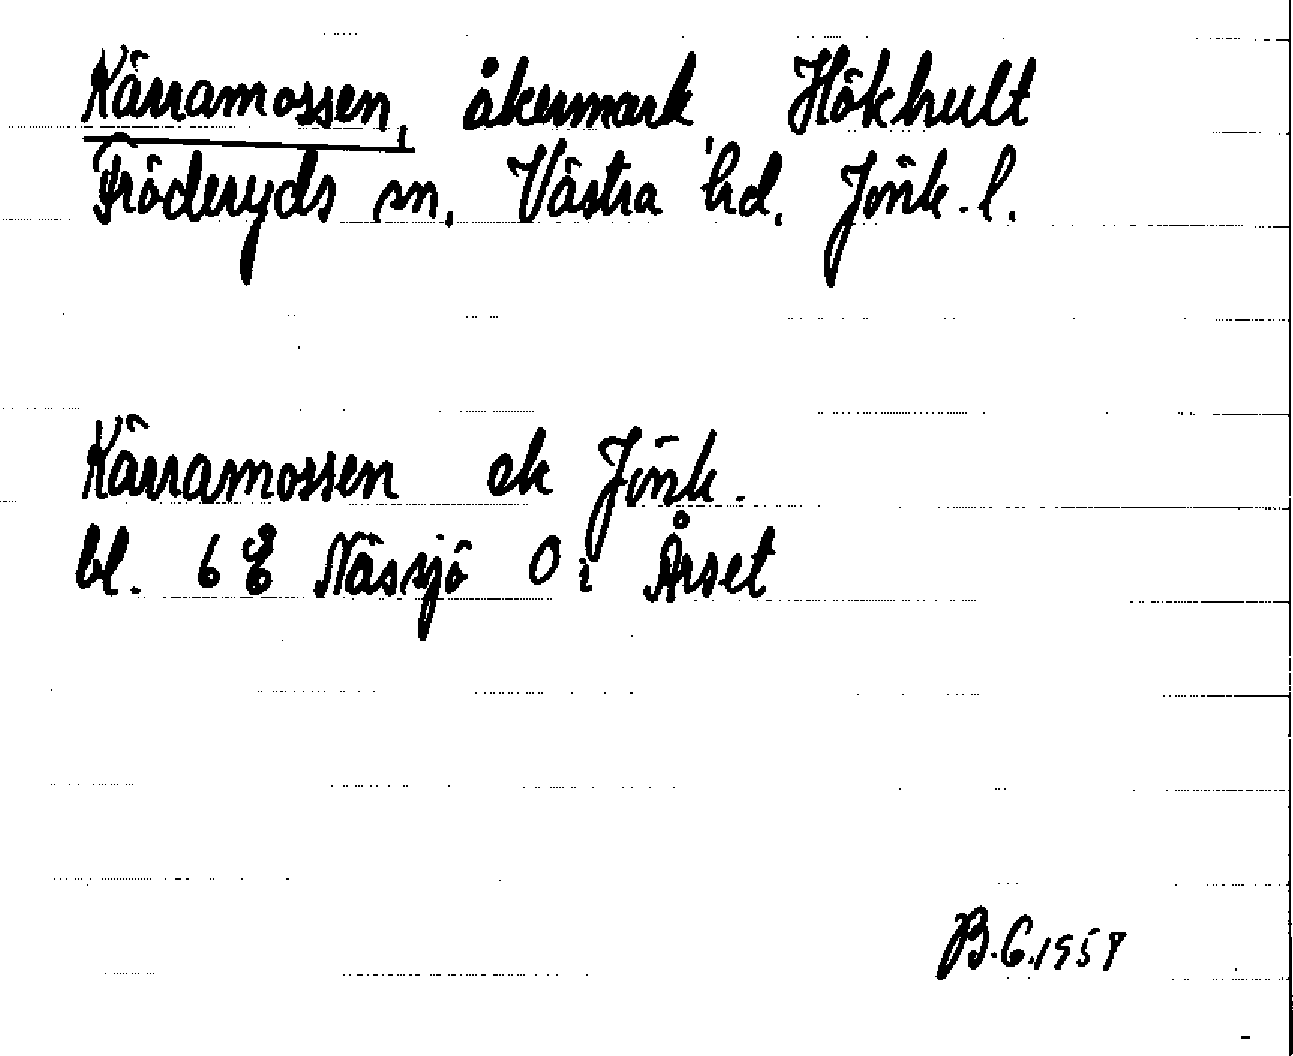 Kärramossen, åkermark, Hökhult
Fröderyds sn, Västra hd, Jönk. l.
Kärramossen ek Jönk.
bl. 6 E Nässjö O i Årset
B.G. 1959